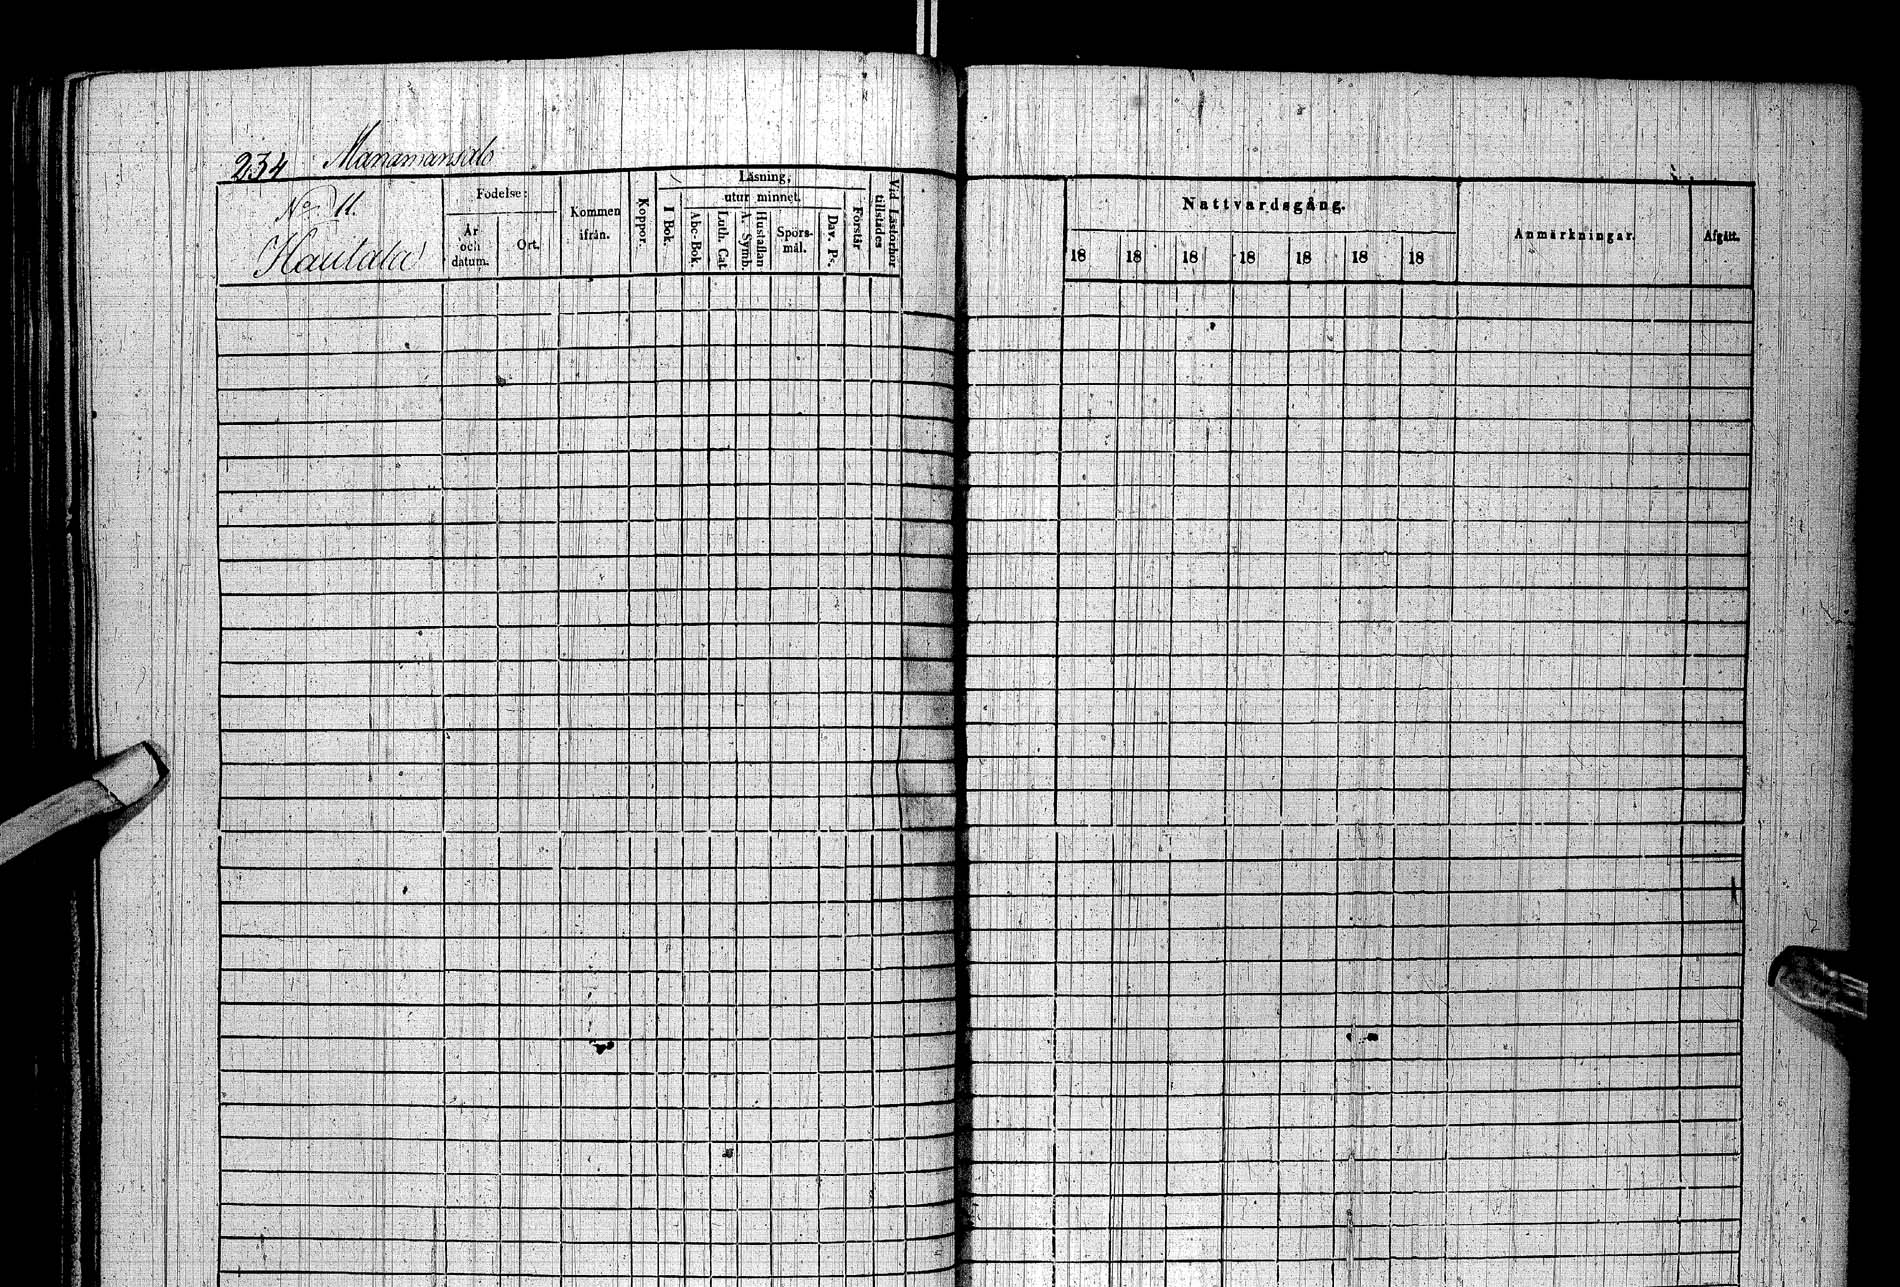 234 Manamansalo
No 11.
Hautala
Födelse:
År och datum.
Ort.
Kommen ifrån.
Koppor.
Läsning,
I Bok.
utur minnet.
Abc-Bok.
Luth. Cat.
A. Symb.
Hustaflan
Spörs-mål.
Dav. Ps.
Förstår
Vid Läsförhör tillstädes
Nattvardsgång.
18 18 18 18 18 18 18
Anmärkningar.
Afgått.